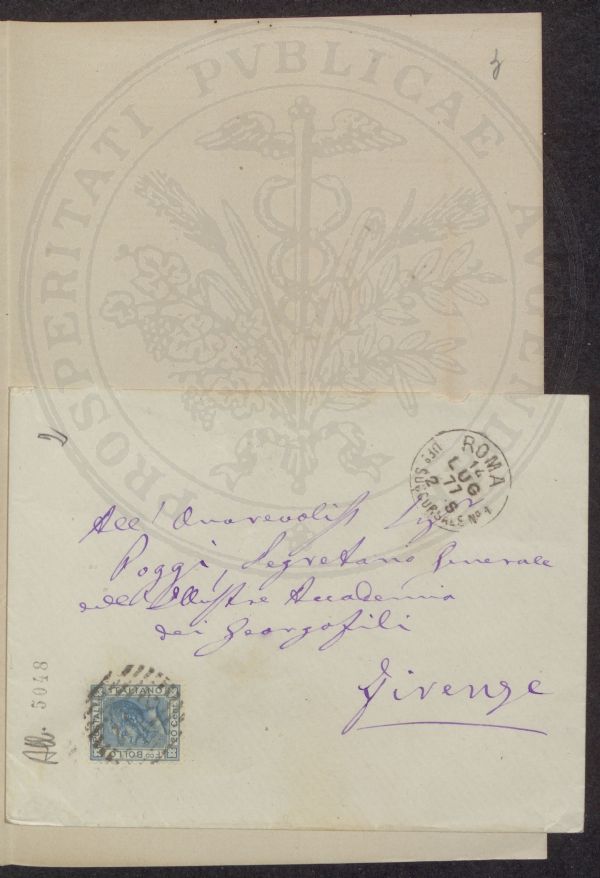 PROSPERITATI PVBLICAE AVGENDAE
2
ROMA
14
LUG
77
2 S
UFF. SUCCURSALE No. 1
All' Onorevoliss Sigr
Poggi, Segretario Generale
dell' Illustre Accademia
dei Georgofili
Firenze
All. 5048
ITALIANO
FCO BOLLO